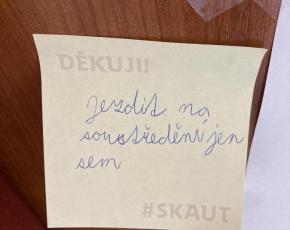 DĚKUJI!
jezdit na
soustředění jen
sem
#SKAUT